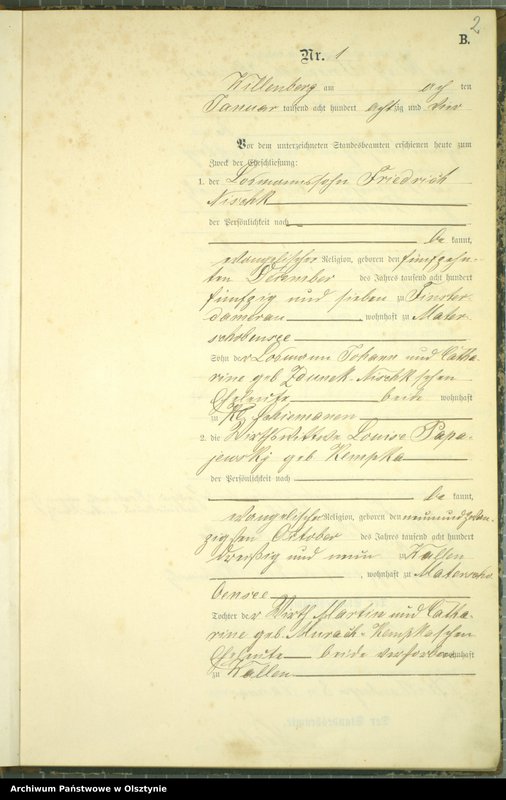 2
B.
Nr. 1
Willenberg am ach ten
Januar tausend acht hundert achtzig und vier
Vor dem unterzeichneten Standesbeamten erschienen heute zum
Zweck der Eheschließung:
1. der Losmannssohn Friedrich
Nischk
der Persönlichkeit nach
be kannt,
evangelischer Religion, geboren den fünfzehn-
ten Dezember des Jahres tausend acht hundert
fünfzig und sieben zu Finster-
damerau, wohnhaft zu Mater-
schobensee
Sohn der Losmann Johann und Catha-
rine geb Zdunek-Nischk'schen
Eheleute beide wohnhaft
zu Kl. Schiemanen
2. die Wirthswittwe Louise Papa-
jewski geb Kempka
der Persönlichkeit nach
be kannt,
evangelischer Religion, geboren den neunundzwan-
zigsten Oktober des Jahres tausend acht hundert
dreißig und neun zu Kallen
, wohnhaft zu Materscho-
bensee
Tochter der Wirth Martin und Catha-
rine geb. Murach-Kempkaschen
Eheleute beide verstorben wohnhaft
zu Kallen
Der Standesbeamte.
Archiwum Państwowe w Olsztynie